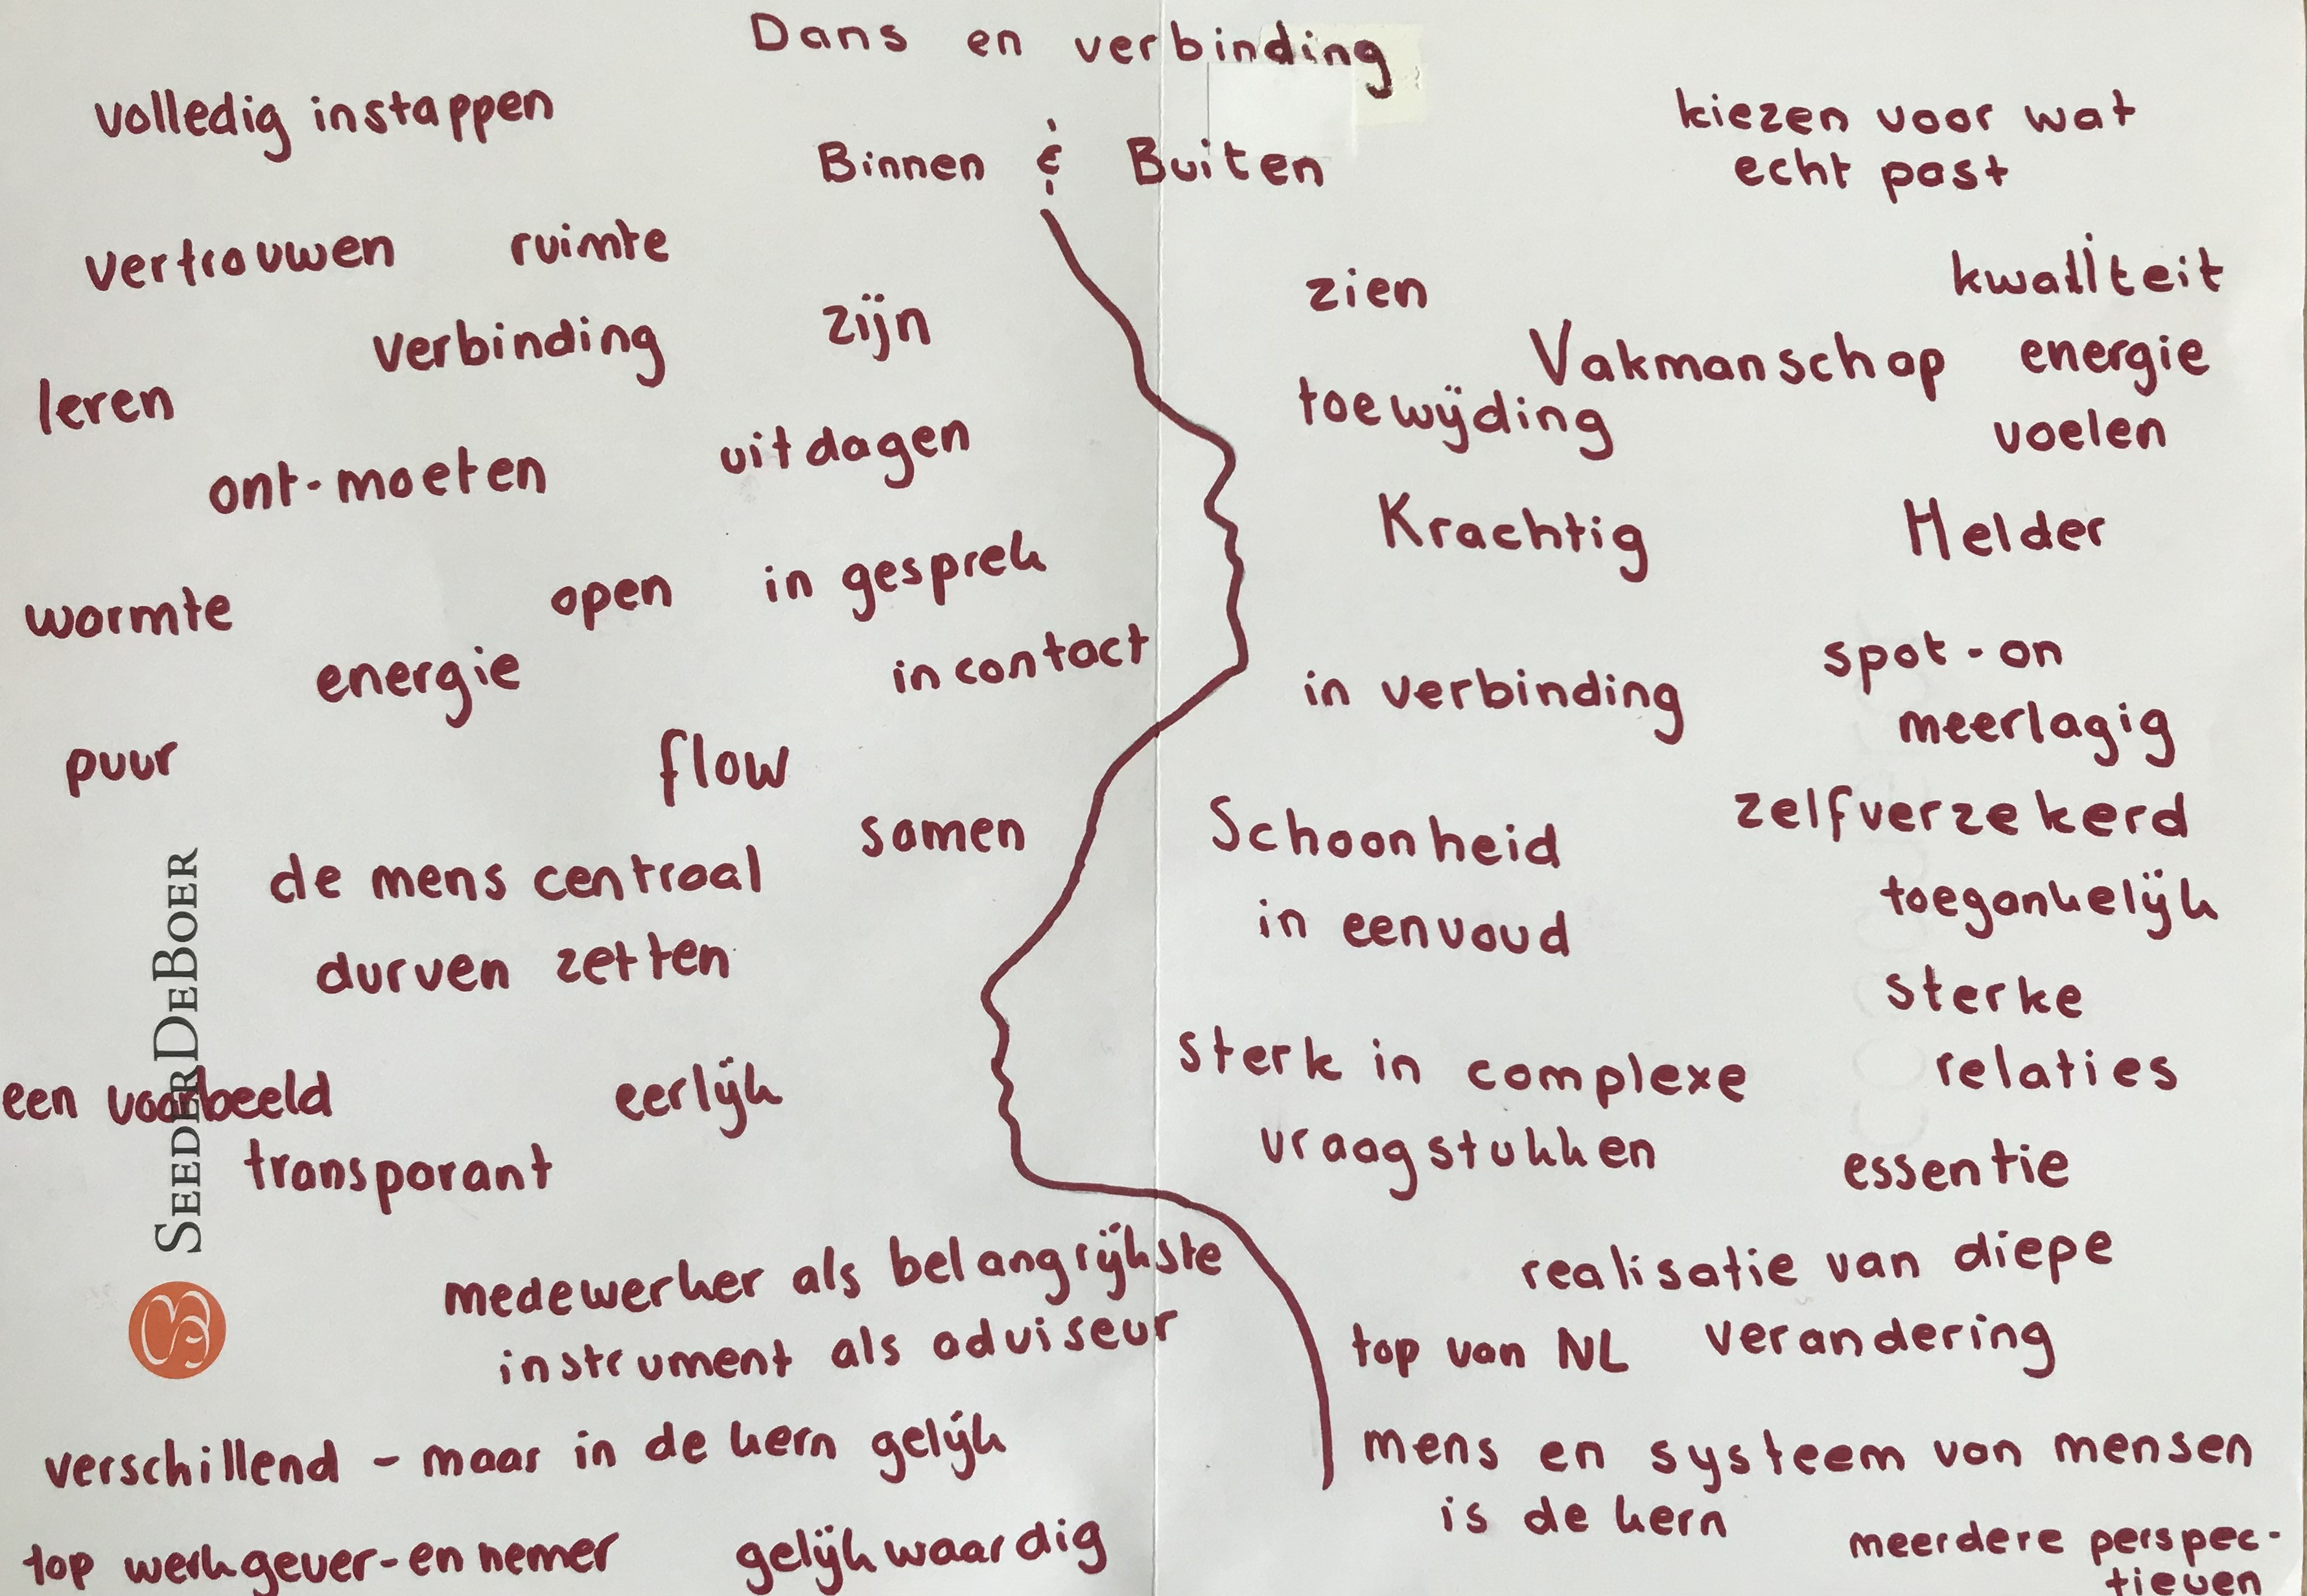 Dans en verbinding
Binnen & Buiten
volledig instappen
vertrouwen ruimte
verbinding zijn
leren
ont-moeten uitdagen
open in gesprek
warmte
energie in contact
puur flow
samen
de mens centraal
durven zetten
een voorbeeld eerlijk
transparant
medewerker als belangrijkste
instrument als adviseur
verschillend - maar in de kern gelijk
top werkgever-en nemer gelijkwaardig
SEEDERDEBOER
kiezen voor wat
echt past
zien kwaliteit
Vakmanschap energie
toewijding voelen
Krachtig Helder
in verbinding spot-on
meerlagig
Schoonheid zelfverzekerd
in eenvoud toegankelijk
sterke
sterk in complexe relaties
vraagstukken essentie
realisatie van diepe
top van NL verandering
mens en systeem van mensen
is de kern
meerdere perspec-
tieven